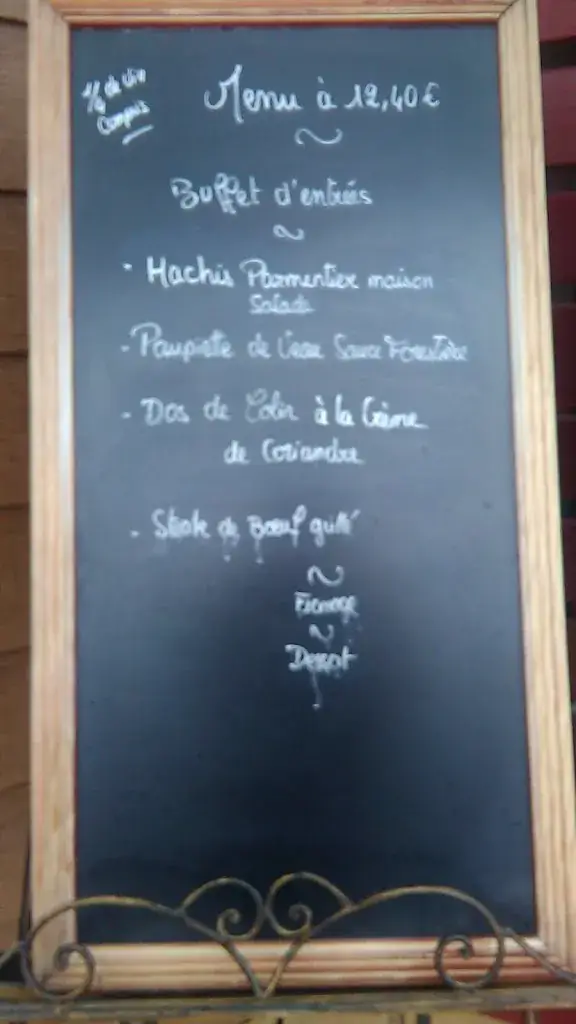 1/4 de vin
Compris
Menu à 12,40€
Buffet d'entrées
- Hachis Parmentier maison
Salade
- Paupiette de Veau Sauce Forestière
- Dos de Colin à la Crème
de Coriandre
- Steak de Boeuf grillé
Fromage
Dessert